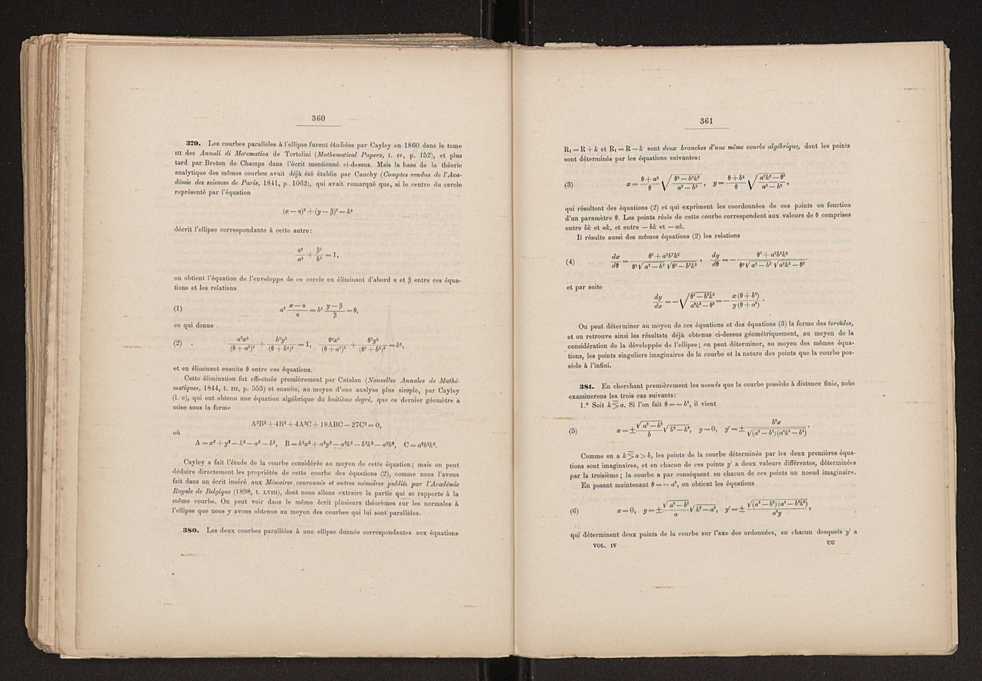 360
379. Les courbes parallèles à l'ellipse furent étudiées par Cayley en 1860 dans le tome
III des Annali di Matematica de Tortolini (Mathematical Papers, t. IV, p. 152), et plus
tard par Breton de Champs dans l'écrit mentionné ci-dessus. Mais la base de la théorie
analytique des mêmes courbes avait déjà été établie par Cauchy (Comptes rendus de l'Aca-
démie des sciences de Paris, 1841, p. 1062), qui avait remarqué que, si le centre du cercle
représenté par l'équation
(x — α)² + (y — β)² = k²
décrit l'ellipse correspondante à cette autre:
α²/a² + β²/b² = 1,
on obtient l'équation de l'enveloppe de ce cercle en éliminant d'abord α et β entre ces équa-
tions et les relations
(1) a² (x — α)/α = b² (y — β)/β = θ,
ce qui donne
(2) a²x²/(θ + a²)² + b²y²/(θ + b²)² = 1, θ²x²/(θ + a²)² + θ²y²/(θ + b²)² = k²,
et en éliminant ensuite θ entre ces équations.
Cette élimination fut effectuée premièrement par Catalan (Nouvelles Annales de Mathé-
matiques, 1844, t. III, p. 553) et ensuite, au moyen d'une analyse plus simple, par Cayley
(l. c), qui ont obtenu une équation algébrique du huitième degré, que ce dernier géomètre a
mise sous la forme
A²B² + 4B³ + 4A³C + 18ABC — 27C² = 0,
où
A = x² + y² — k² — a² — b², B = k²a² + a²y² — a²b² — b²k² — a²b², C = a²b²k².
Cayley a fait l'étude de la courbe considérée au moyen de cette équation; mais on peut
déduire directement les propriétés de cette courbe des équations (2), comme nous l'avons
fait dans un écrit inséré aux Mémoires couronnés et autres mémoires publiés par l'Académie
Royale de Belgique (1898, t. LVIII), dont nous allons extraire la partie qui se rapporte à la
même courbe. On peut voir dans le même écrit plusieurs théorèmes sur les normales à
l'ellipse que nous y avons obtenus au moyen des courbes qui lui sont parallèles.
380. Les deux courbes parallèles à une ellipse donnée correspondantes aux équations
361
R₁ = R + k et R₁ = R — k sont deux branches d'une même courbe algébrique, dont les points
sont déterminés par les équations suivantes:
(3) x = (θ + a²)/θ √((θ² — b²k²)/(a² — b²)), y = (θ + b²)/θ √((a²k² — θ²)/(a² — b²)),
qui résultent des équations (2) et qui expriment les coordonnées de ces points en fonction
d'un paramètre θ. Les points réels de cette courbe correspondent aux valeurs de θ comprises
entre bk et ak, et entre — bk et — ak.
Il résulte aussi des mêmes équations (2) les relations
(4) dx/dθ = (θ³ + a²b²k²)/(θ²√(a² — b²) √(θ² — b²k²)), dy/dθ = — (θ³ + a²b²k²)/(θ²√(a² — b²) √(a²k² — θ²))
et par suite
dy/dx = — √((θ² — b²k²)/(a²k² — θ²)) = — x(θ + b²)/y(θ + a²).
On peut déterminer au moyen de ces équations et des équations (3) la forme des toroïdes,
et on retrouve ainsi les résultats déjà obtenus ci-dessus géométriquement, au moyen de la
considération de la développée de l'ellipse; on peut déterminer, au moyen des mêmes équa-
tions, les points singuliers imaginaires de la courbe et la nature des points que la courbe pos-
sède à l'infini.
381. En cherchant premièrement les nœuds que la courbe possède à distance finie, nous
examinerons les trois cas suivants:
1.º Soit k ≧ a. Si l'on fait θ = — b², il vient
(5) x = ± √(a² — b²)/b √(b² — k²), y = 0, y' = ± b²x/√((a² — b²)(a²k² — b⁴))
Comme on a k ≧ a > b, les points de la courbe déterminés par les deux premières équa-
tions sont imaginaires, et en chacun de ces points y' a deux valeurs différentes, déterminées
par la troisième; la courbe a par conséquent en chacun de ces points un nœud imaginaire.
En posant maintenant θ = — a², on obtient les équations
(6) x = 0, y = ± √(a² — b²)/a √(k² — a²), y' = ± √((a² — b²)(a⁴ — b²k²))/a²y,
qui déterminent deux points de la courbe sur l'axe des ordonnées, en chacun desquels y' a
VOL. IV